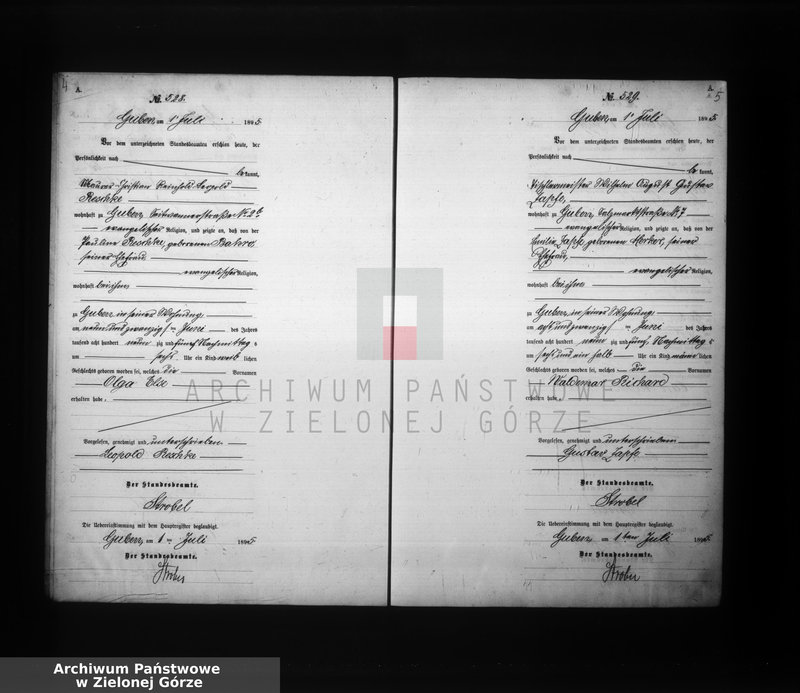 4
A.
№ 528.
Guben am 1ten Juli 1895.
Vor dem unterzeichneten Standesbeamten erschien heute, der
Persönlichkeit nach
be kannt,
Maurer Christian Reinhold Leopold
Reschke
wohnhaft zu Guben
evangelischer Religion, und zeigte an, daß von der
Pauline Reschke, geborenen
seiner Ehefrau,
evangelischer Religion,
wohnhaft bei ihm
zu Guben in seiner Wohnung
am neun und zwanzig ten Juni des Jahres
tausend acht hundert neun zig und fünf Nachmittag s
um sechs Uhr ein Kind weib lichen
Geschlechts geboren worden sei, welches die Vornamen
Olga Else
erhalten habe.
Vorgelesen, genehmigt und unterschrieben
Leopold Reschke
Der Standesbeamte.
Strobel
Die Uebereinstimmung mit dem Hauptregister beglaubigt.
Guben am 1ten Juli 1895
Der Standesbeamte.
A.
5
№ 529.
Guben am 1ten Juli 1895.
Vor dem unterzeichneten Standesbeamten erschien heute, der
Persönlichkeit nach
be kannt,
Tischlermeister Wilhelm August Gustav
Zapfe,
wohnhaft zu Guben Salzmarktstraße № 7
evangelischer Religion, und zeigte an, daß von der
Emilie Zapfe geborenen seiner
Ehefrau,
evangelischer Religion,
wohnhaft bei ihm
zu Guben in seiner Wohnung
am acht und zwanzig ten Juni des Jahres
tausend acht hundert neun zig und fünf Nachmittag s
um sechs und ein halb Uhr ein Kind männ lichen
Geschlechts geboren worden sei, welches die Vornamen
Waldemar Richard
erhalten habe.
Vorgelesen, genehmigt und unterschrieben
Gustav Zapfe
Der Standesbeamte.
Strobel
Die Uebereinstimmung mit dem Hauptregister beglaubigt.
Guben am 1ten Juli 1895.
Der Standesbeamte.
ARCHIWUM PAŃSTWOWE
W ZIELONEJ GÓRZE
Archiwum Państwowe
w Zielonej Górze